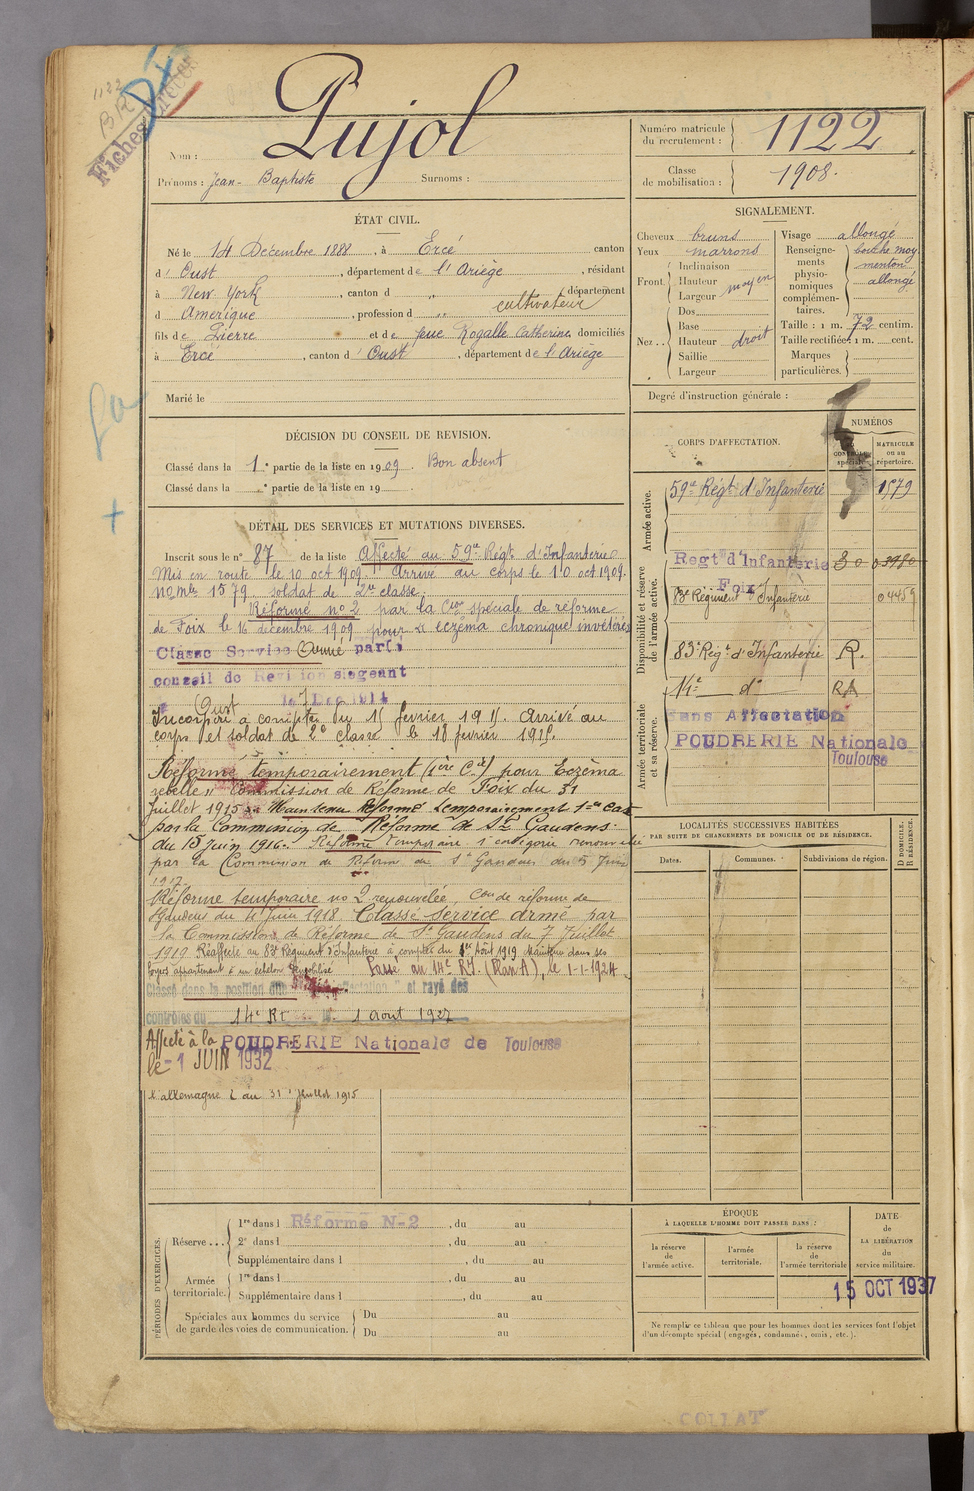 1122
BR
Fiches
Pujol
Nom :
Prénoms : Jean-Baptiste Surnoms :
Numéro matricule du recrutement : 1122
Classe de mobilisation : 1908.
ÉTAT CIVIL.
Né le 14 Décembre 1888, à Ercé canton
d' Oust, département de l'Ariège, résidant
à New-York, canton d " département
d Amérique, profession d " cultivateur
fils de Pierre et de feue Rogalle Catherine domiciliés
à Ercé, canton d' Oust, département de l'Ariège
Marié le
SIGNALEMENT.
Cheveux bruns
Yeux marrons
Front. Inclinaison
Hauteur moyen
Largeur
Nez.. Dos
Base
Hauteur droit
Saillie
Largeur
Visage allongé
Renseignements physionomiques complémentaires. bouche moy
menton
allongé
Taille : 1 m. 72 centim.
Taille rectifiée : 1 m. cent.
Marques particulières.
Degré d'instruction générale :
DÉCISION DU CONSEIL DE REVISION.
Classé dans la 1e partie de la liste en 1909. Bon absent
Classé dans la e partie de la liste en 19
DÉTAIL DES SERVICES ET MUTATIONS DIVERSES.
Inscrit sous le n° 87 de la liste Affecté au 59e Régt d'Infanterie
Mis en route le 10 oct 1909. Arrivé au corps le 10 oct 1909.
No mle 1579. soldat de 2me classe.
Réformé no 2 par la Con spéciale de réforme
de Foix le 16 décembre 1909 pour "eczéma chronique invétéré"
Classé Service Armé par le
conseil de Revision siégeant
à Oust le 7 Dec 1914
Incorporé à compter du 15 février 1915. Arrivé au
corps et soldat de 2e classe le 18 février 1915.
Réformé temporairement (1ère Cie) pour Eczéma
rebelle " Commission de Réforme de Foix du 31
Juillet 1915 Maintenu Réformé temporairement 1ère Cat
par la Commission de Réforme de St Gaudens
du 15 Juin 1916. Réforme temporaire 1e catégorie renouvelée
par la Commission de Réforme de St Gaudens du 5 Juin
1917.
Réforme temporaire no 2 renouvelée, Con de réforme de
St Gaudens du 4 Juin 1918. Classé service armé par
la Commission de Réforme de St Gaudens du 7 Juillet
1919 Réaffecté au 83e Régiment d'Infanterie à compter du 1er Août 1919 Maintenu dans ses
foyers appartenant à un échelon démobilisé Passé au 14e R.I. (Ran A), le 1-1-1924
Classé dans la position dite affectation " et rayé des
contrôles du 14e RI le 1 aout 1927
Affecté à la POUDRERIE Nationale de Toulouse
le - 1 JUIN 1932
l'allemagne au 31 juillet 1915
CORPS D'AFFECTATION.
NUMÉROS
CONTRÔLE spécial.
MATRICULE ou au répertoire.
Armée active.
59e Régt d'Infanterie 1579
Disponibilité et réserve de l'armée active.
Regt d'Infanterie 30 03980
Foix
83e Régiment d'Infanterie 04459
83e Régt d'Infanterie R.
Armée territoriale et sa réserve.
14e d° RA
Sans Affectation
POUDRERIE Nationale
Toulouse
LOCALITÉS SUCCESSIVES HABITÉES
PAR SUITE DE CHANGEMENTS DE DOMICILE OU DE RÉSIDENCE.
Dates. Communes. Subdivisions de région. D DOMICILE. R RÉSIDENCE.
PÉRIODES D'EXERCICES.
Réserve... 1re dans l Réformé N-2, du au
2e dans l, du au
Supplémentaire dans l, du au
Armée territoriale. 1re dans l, du au
Supplémentaire dans l, du au
Spéciales aux hommes du service de garde des voies de communication. Du au
Du au
ÉPOQUE
À LAQUELLE L'HOMME DOIT PASSER DANS :
la réserve de l'armée active.
l'armée territoriale.
la réserve de l'armée territoriale
DATE de LA LIBÉRATION du service militaire.
15 OCT 1937
Ne remplir ce tableau que pour les hommes dont les services font l'objet
d'un décompte spécial (engagés, condamnés, omis, etc.).
COLLAT